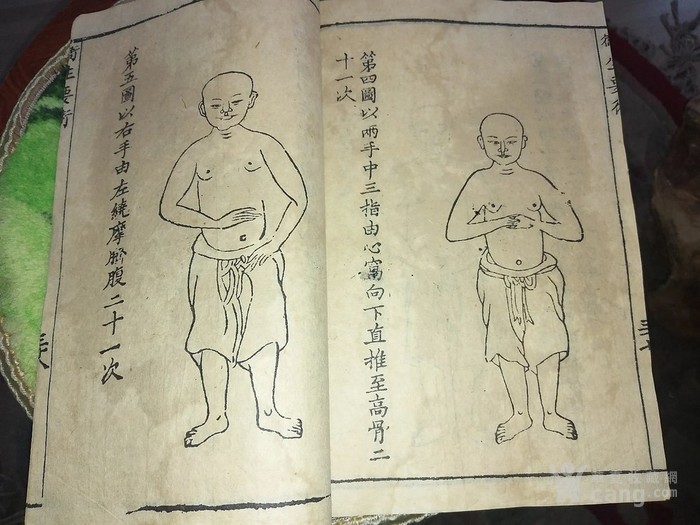 第四圖以兩手中三指由心窩向下直推至高骨二
十一次
第五圖以右手由左繞摩臍腹二十一次
衛生要術